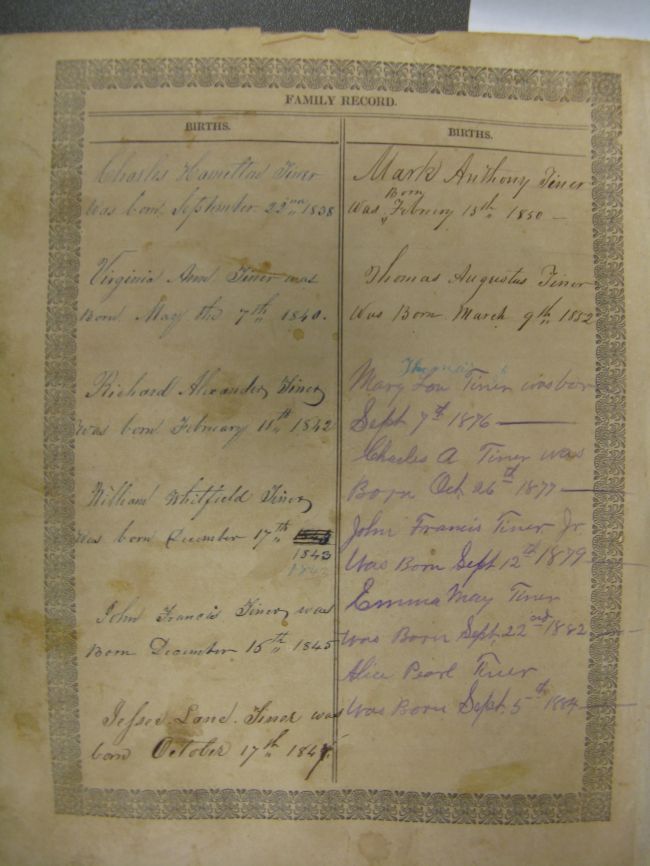 FAMILY RECORD.
BIRTHS.
Charles Hamilton Tiner
was born September 22nd 1838
Virginia Ann Tiner was
Born May the 7th 1840.
Richard Alexander Tiner
was born February 11th 1842
William Whitfield Tiner
was born December 17th
1843
1843
John Francis Tiner was
Born December 15th 1845
Jessee Lane Tiner was
born October 17th 1847
BIRTHS.
Mark Anthony Tiner
Born
Was February 15th 1850
Thomas Augustus Tiner
Was Born March 9th 1852
Mary Lou Tiner was born
Sept 7th 1876
Charles A Tiner was
Born Oct 26th 1877
John Francis Tiner Jr
Was Born Sept 12th 1879
Emma May Tiner
Was Born Sept 22nd 1882
Alice Pearl Tiner
Was Born Sept 5th 1884